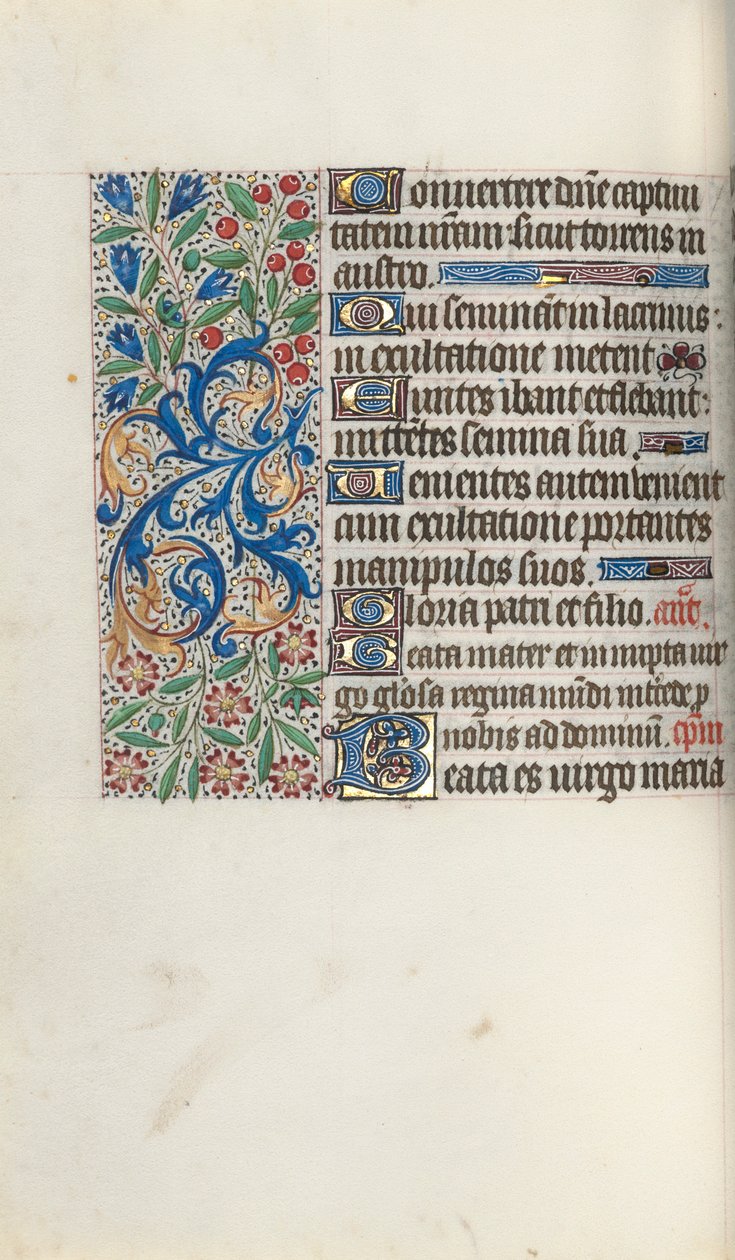 Convertere dñe captivi
tatem nr̃am: sicut torrens in
austro.
Qui seminãt in lacrimis:
in exultatione metent
Euntes ibant et flebant:
mittẽtes semina sua.
Uenientes autem venient
cum exultatione portantes
manipulos suos.
Gloria patri et filio. añt.
Beata mater et innupta vir
go gl̃osa regina mũdi int̃cede p̱
nobis ad dominũ. cp̃m
Beata es virgo maria